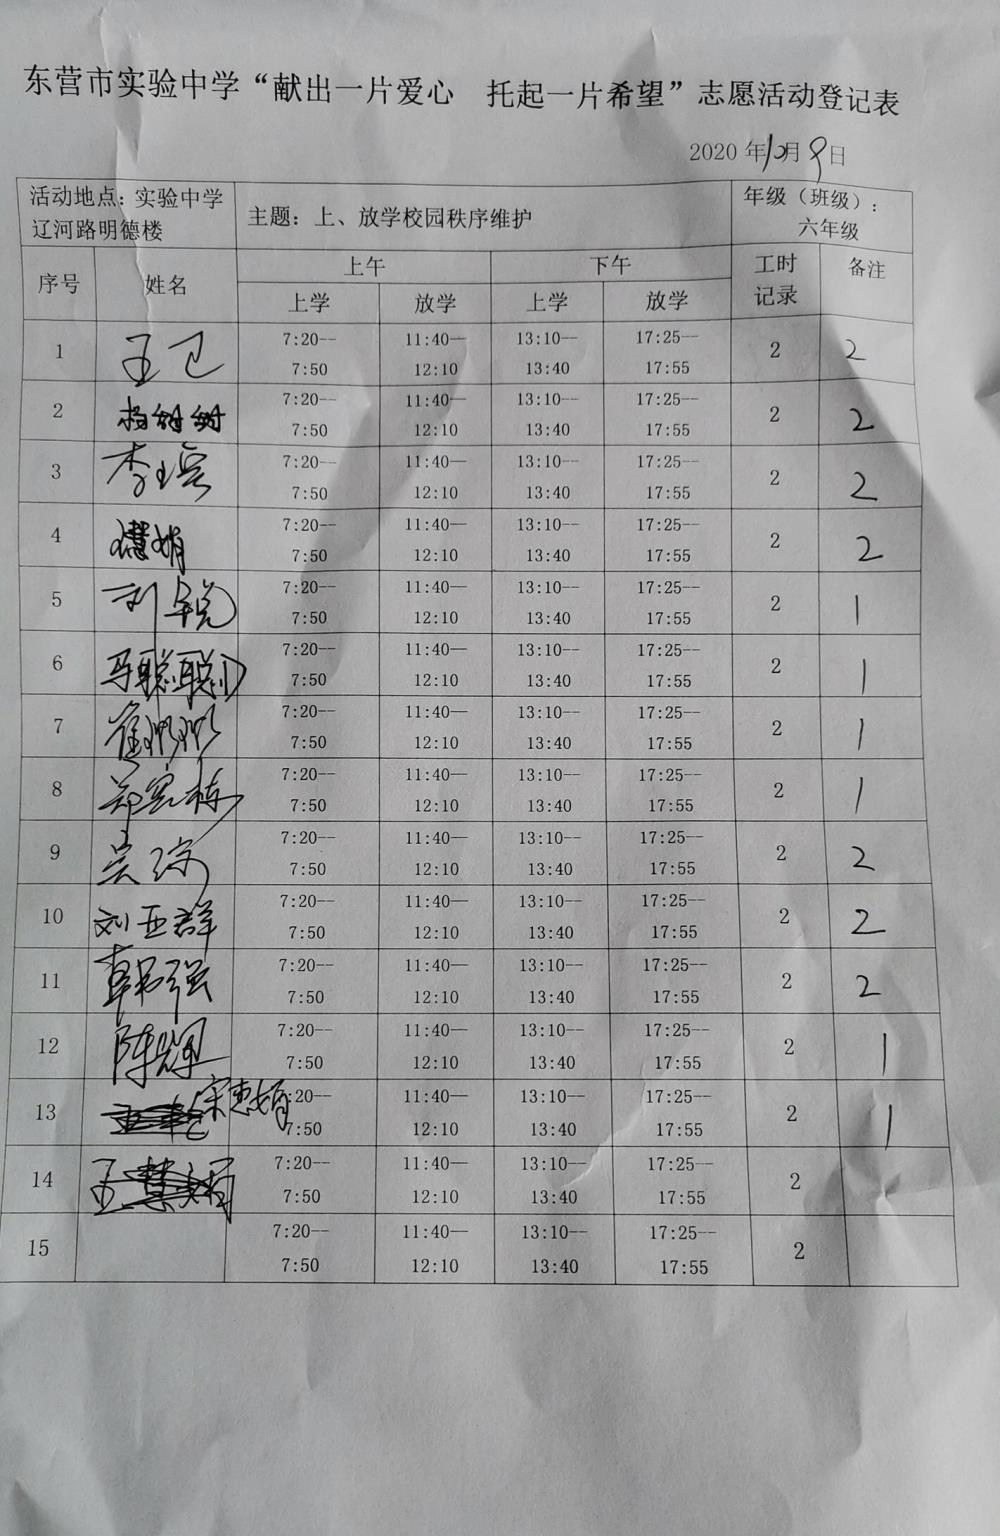 东营市实验中学“献出一片爱心 托起一片希望”志愿活动登记表
2020 年10月9日
活动地点：实验中学
辽河路明德楼
主题：上、放学校园秩序维护
年级（班级）：
六年级
序号 姓名 上午 下午 工时记录 备注
上学 放学 上学 放学
1 王卫 7:20-- 11:40— 13:10-- 17:25-- 2 2
7:50 12:10 13:40 17:55
2 7:20-- 11:40— 13:10-- 17:25-- 2 2
7:50 12:10 13:40 17:55
3 7:20-- 11:40— 13:10-- 17:25-- 2 2
7:50 12:10 13:40 17:55
4 7:20-- 11:40— 13:10-- 17:25-- 2 2
7:50 12:10 13:40 17:55
5 7:20-- 11:40— 13:10-- 17:25-- 2 1
7:50 12:10 13:40 17:55
6 马聪聪 7:20-- 11:40— 13:10-- 17:25-- 2 1
7:50 12:10 13:40 17:55
7 7:20-- 11:40— 13:10-- 17:25-- 2 1
7:50 12:10 13:40 17:55
8 7:20-- 11:40— 13:10-- 17:25-- 2 1
7:50 12:10 13:40 17:55
9 7:20-- 11:40— 13:10-- 17:25-- 2 2
7:50 12:10 13:40 17:55
10 刘亚群 7:20-- 11:40— 13:10-- 17:25-- 2 2
7:50 12:10 13:40 17:55
11 韩强 7:20-- 11:40— 13:10-- 17:25-- 2 2
7:50 12:10 13:40 17:55
12 陈辉 7:20-- 11:40— 13:10-- 17:25-- 2 1
7:50 12:10 13:40 17:55
13 宋惠娟 7:20-- 11:40— 13:10-- 17:25-- 2 1
7:50 12:10 13:40 17:55
14 7:20-- 11:40— 13:10-- 17:25-- 2
7:50 12:10 13:40 17:55
15 7:20-- 11:40— 13:10-- 17:25-- 2
7:50 12:10 13:40 17:55